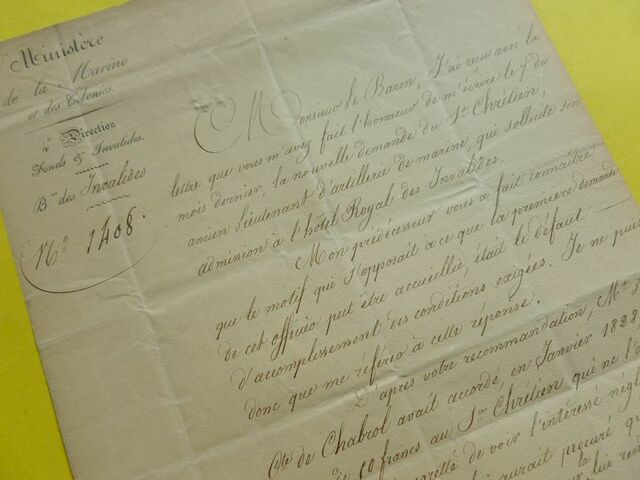 Ministère
de la Marine
et des Colonies.
4e Direction
Fonds & Invalides.
B.au des Invalides
N.o 1408.
Monsieur le Baron, J'ai reçu avec la
lettre que vous m'avez fait l'honneur de m'écrire le 7 de
mois dernier, la nouvelle demande du Sr. Chrétien,
ancien lieutenant d'artillerie de marine, qui sollicite son
admission à l'hôtel Royal des Invalides.
Mon prédécesseur vous a fait connaître
que le motif qui s'opposait à ce que la première demande
de cet officier put être accueillie, était le défaut
d'accomplissement des conditions exigées. Je ne puis
donc que me référer à cette réponse.
D'après votre recommandation, Mr.
Cte de Chabrol avait accordé, en Janvier 1828
50 francs au Sr. Chrétien qui ne l'a
de voir l'intéressé
aurait
lui